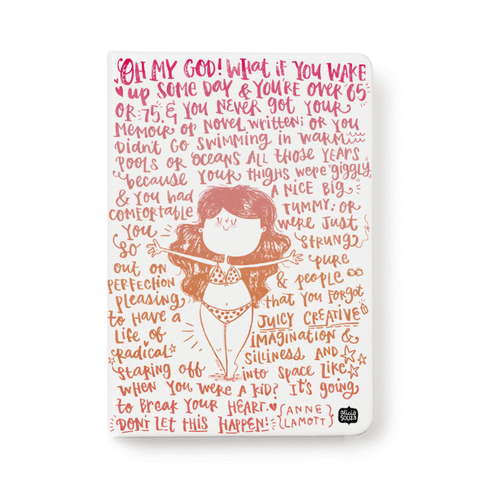 OH MY GOD! WHAT iF YOU WAKE
up SOME DAY & YOU'RE OVER 65
OR 75, & YOU NEVER GOT YOUR
MEMOIR OR NOVEL WRITTEN; OR YOU
DIDN'T GO SWIMMING IN WARM
POOLS OR OCEANS ALL THOSE YEARS
because YOUR THIGHS WERE giggly
& YOU HAD A NICE BIG
COMFORTABLE TUMMY; OR
YOU WERE JUST
SO STRUNG
OUT ON PURE
PERFECTION & PEOPLE
PLEASING THAT YOU FORGOT
to HAVE A JUICY CREATIVE
LIFE OF IMAGINATION &
RADICAL SILLINESS, AND
STARING OFF into SPACE LIKE
WHEN YOU WERE A KID? IT'S going
to BREAK YOUR HEART.
DON'T LET THIS HAPPEN! {ANNE
LAMOTT}
alicia
souza